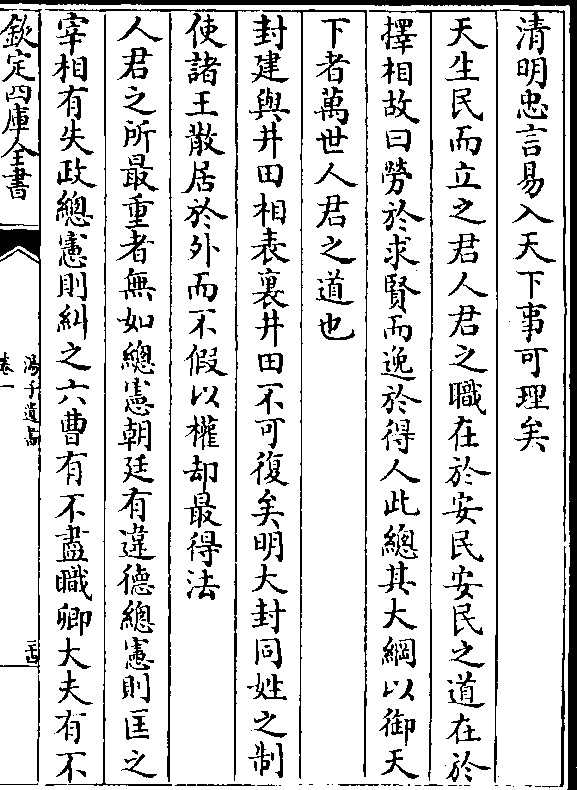 清明忠言易入天下事可理矣
天生民而立之君人君之職在於安民安民之道在於
擇相故曰勞於求賢而逸於得人此總其大綱以御天
下者萬世人君之道也
封建與井田相表裏井田不可復矣明大封同姓之制
使諸王散居於外而不假以權却最得法
人君之所最重者無如總憲朝廷有違德總憲則匡之
宰相有失政總憲則糾之六曹有不盡職卿大夫有不
欽定四庫全書
卷一